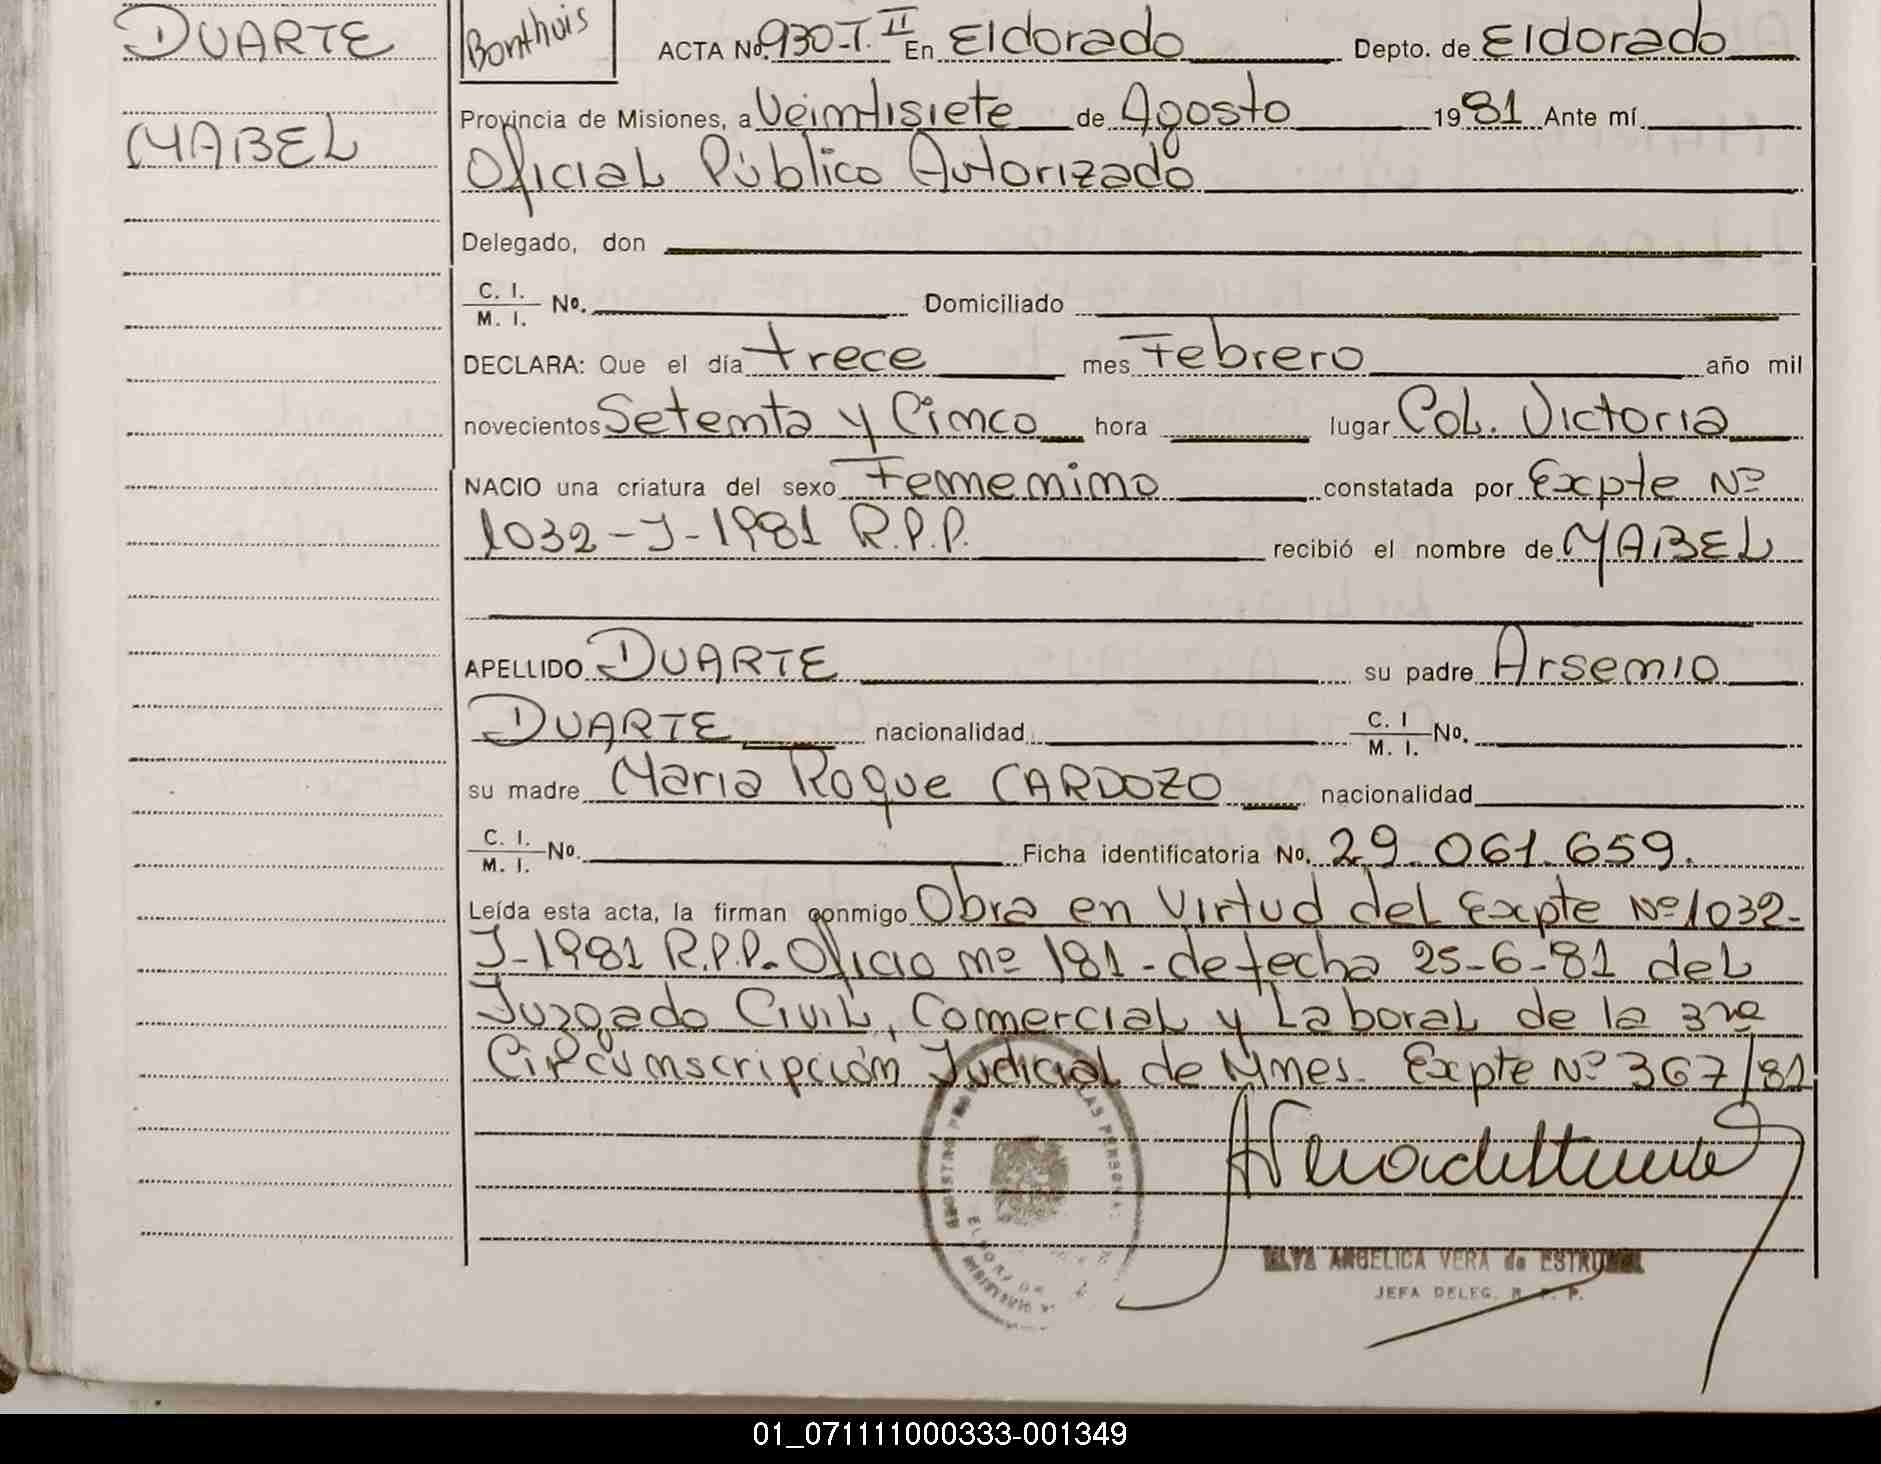 DUARTE
MABEL
Bonthuis
ACTA No. 930-T. II En Eldorado Depto. de Eldorado
Provincia de Misiones, a Veintisiete de Agosto 1981 Ante mí
Oficial Público Autorizado
Delegado, don
C. I. / M. I. No. Domiciliado
DECLARA: Que el día trece mes Febrero año mil
novecientos Setenta y Cinco hora lugar Col. Victoria
NACIO una criatura del sexo Femenino constatada por Expte Nº
1032-J-1981 R.P.P. recibió el nombre de MABEL
APELLIDO DUARTE su padre Arsenio
DUARTE nacionalidad C. I / M. I. No.
su madre Maria Roque CARDOZO nacionalidad
C. I. / M. I. No. Ficha identificatoria No. 29.061.659.
Leída esta acta, la firman conmigo Obra en Virtud del Expte Nº 1032-
J-1981 R.P.P. Oficio nº 181-de fecha 25-6-81 del
Juzgado Civil, Comercial y Laboral de la 3ra
Circunscripción Judicial de Mnes. Expte Nº 367/81
ANGELICA VERA de
JEFA DELEG. R. P. P.
01_071111000333-001349